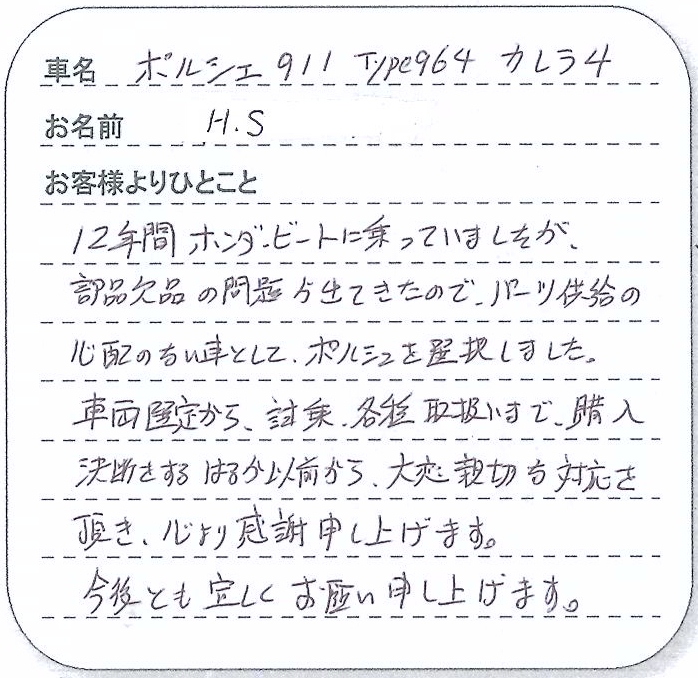 車名 ポルシェ 911 Type964 カレラ4
お名前 H.S
お客様よりひとこと
12年間 ホンダ・ビートに乗っていましたが、
部品欠品の問題が出てきたので、パーツ供給の
心配のない車として、ポルシェを選択しました。
車両選定から、試乗、各種取扱いまで、購入
決断をするはるか以前から、大変親切な対応を
頂き、心より感謝申し上げます。
今後とも宜しくお願い申し上げます。